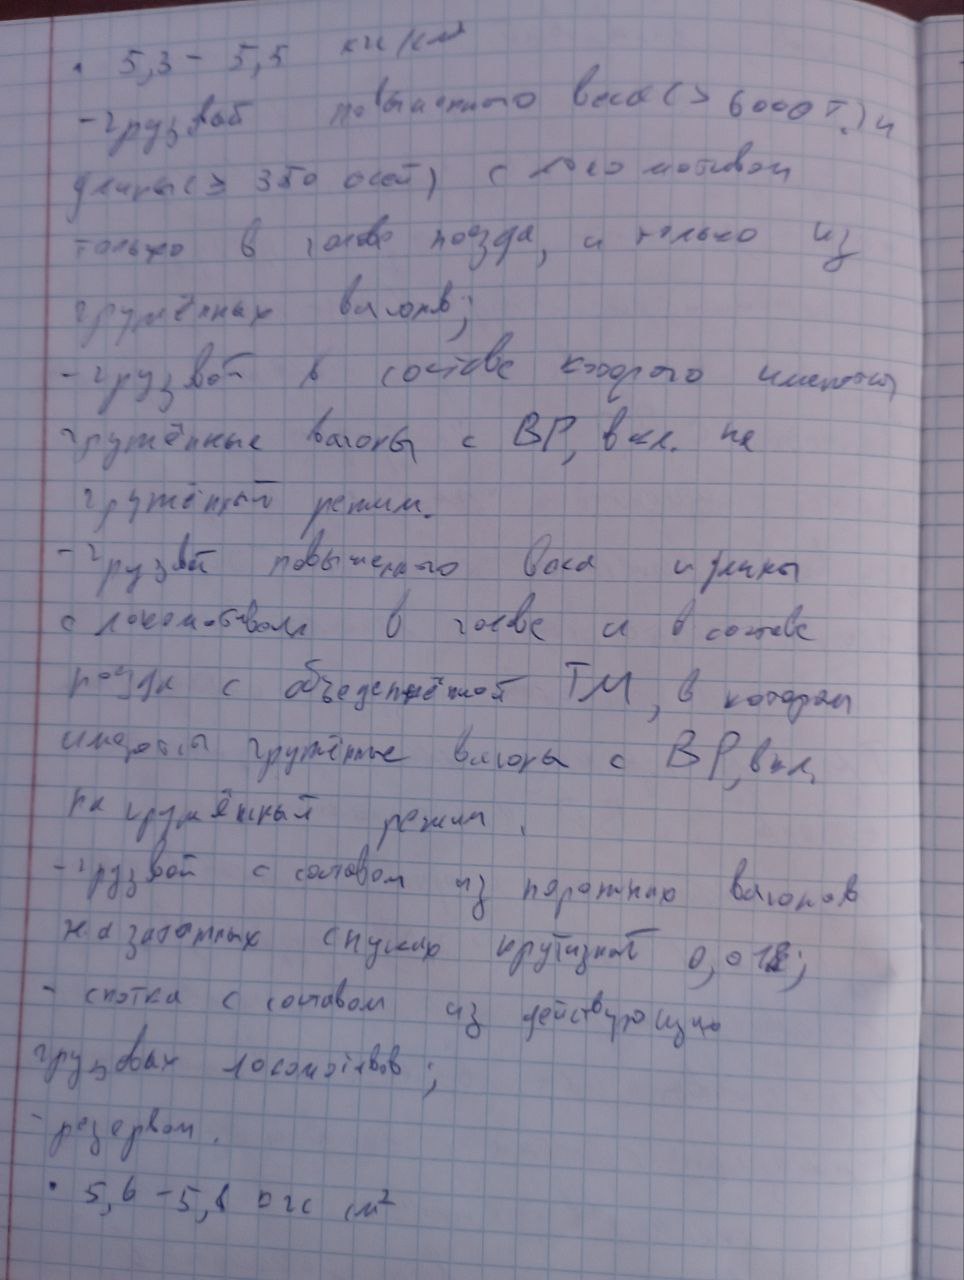 • 5,3 - 5,5 кгс/см²
- грузвой повышенного веса (> 6000 т.) и
длины (≥ 350 осей) с локомотивом
только в голове поезда, и только из
гружёных вагонв;
- грузвой в составе которого имеются
гружённые вагоны с ВР, вкл. на
гружёный режим.
- грузвой повышенного веса и длины
с локомотивом в голве и в составе
поезда с объеденённой ТМ, в котором
имеются гружённые вагоны с ВР, вкл.
на гружёный режим.
- грузвой с составом из порожних вагонов
на затяжных спусках крутизной
- сплотка с составом из действующих
грузовых локомотивов;
- резервом.
• 5,6 - 5,8 кгс см²